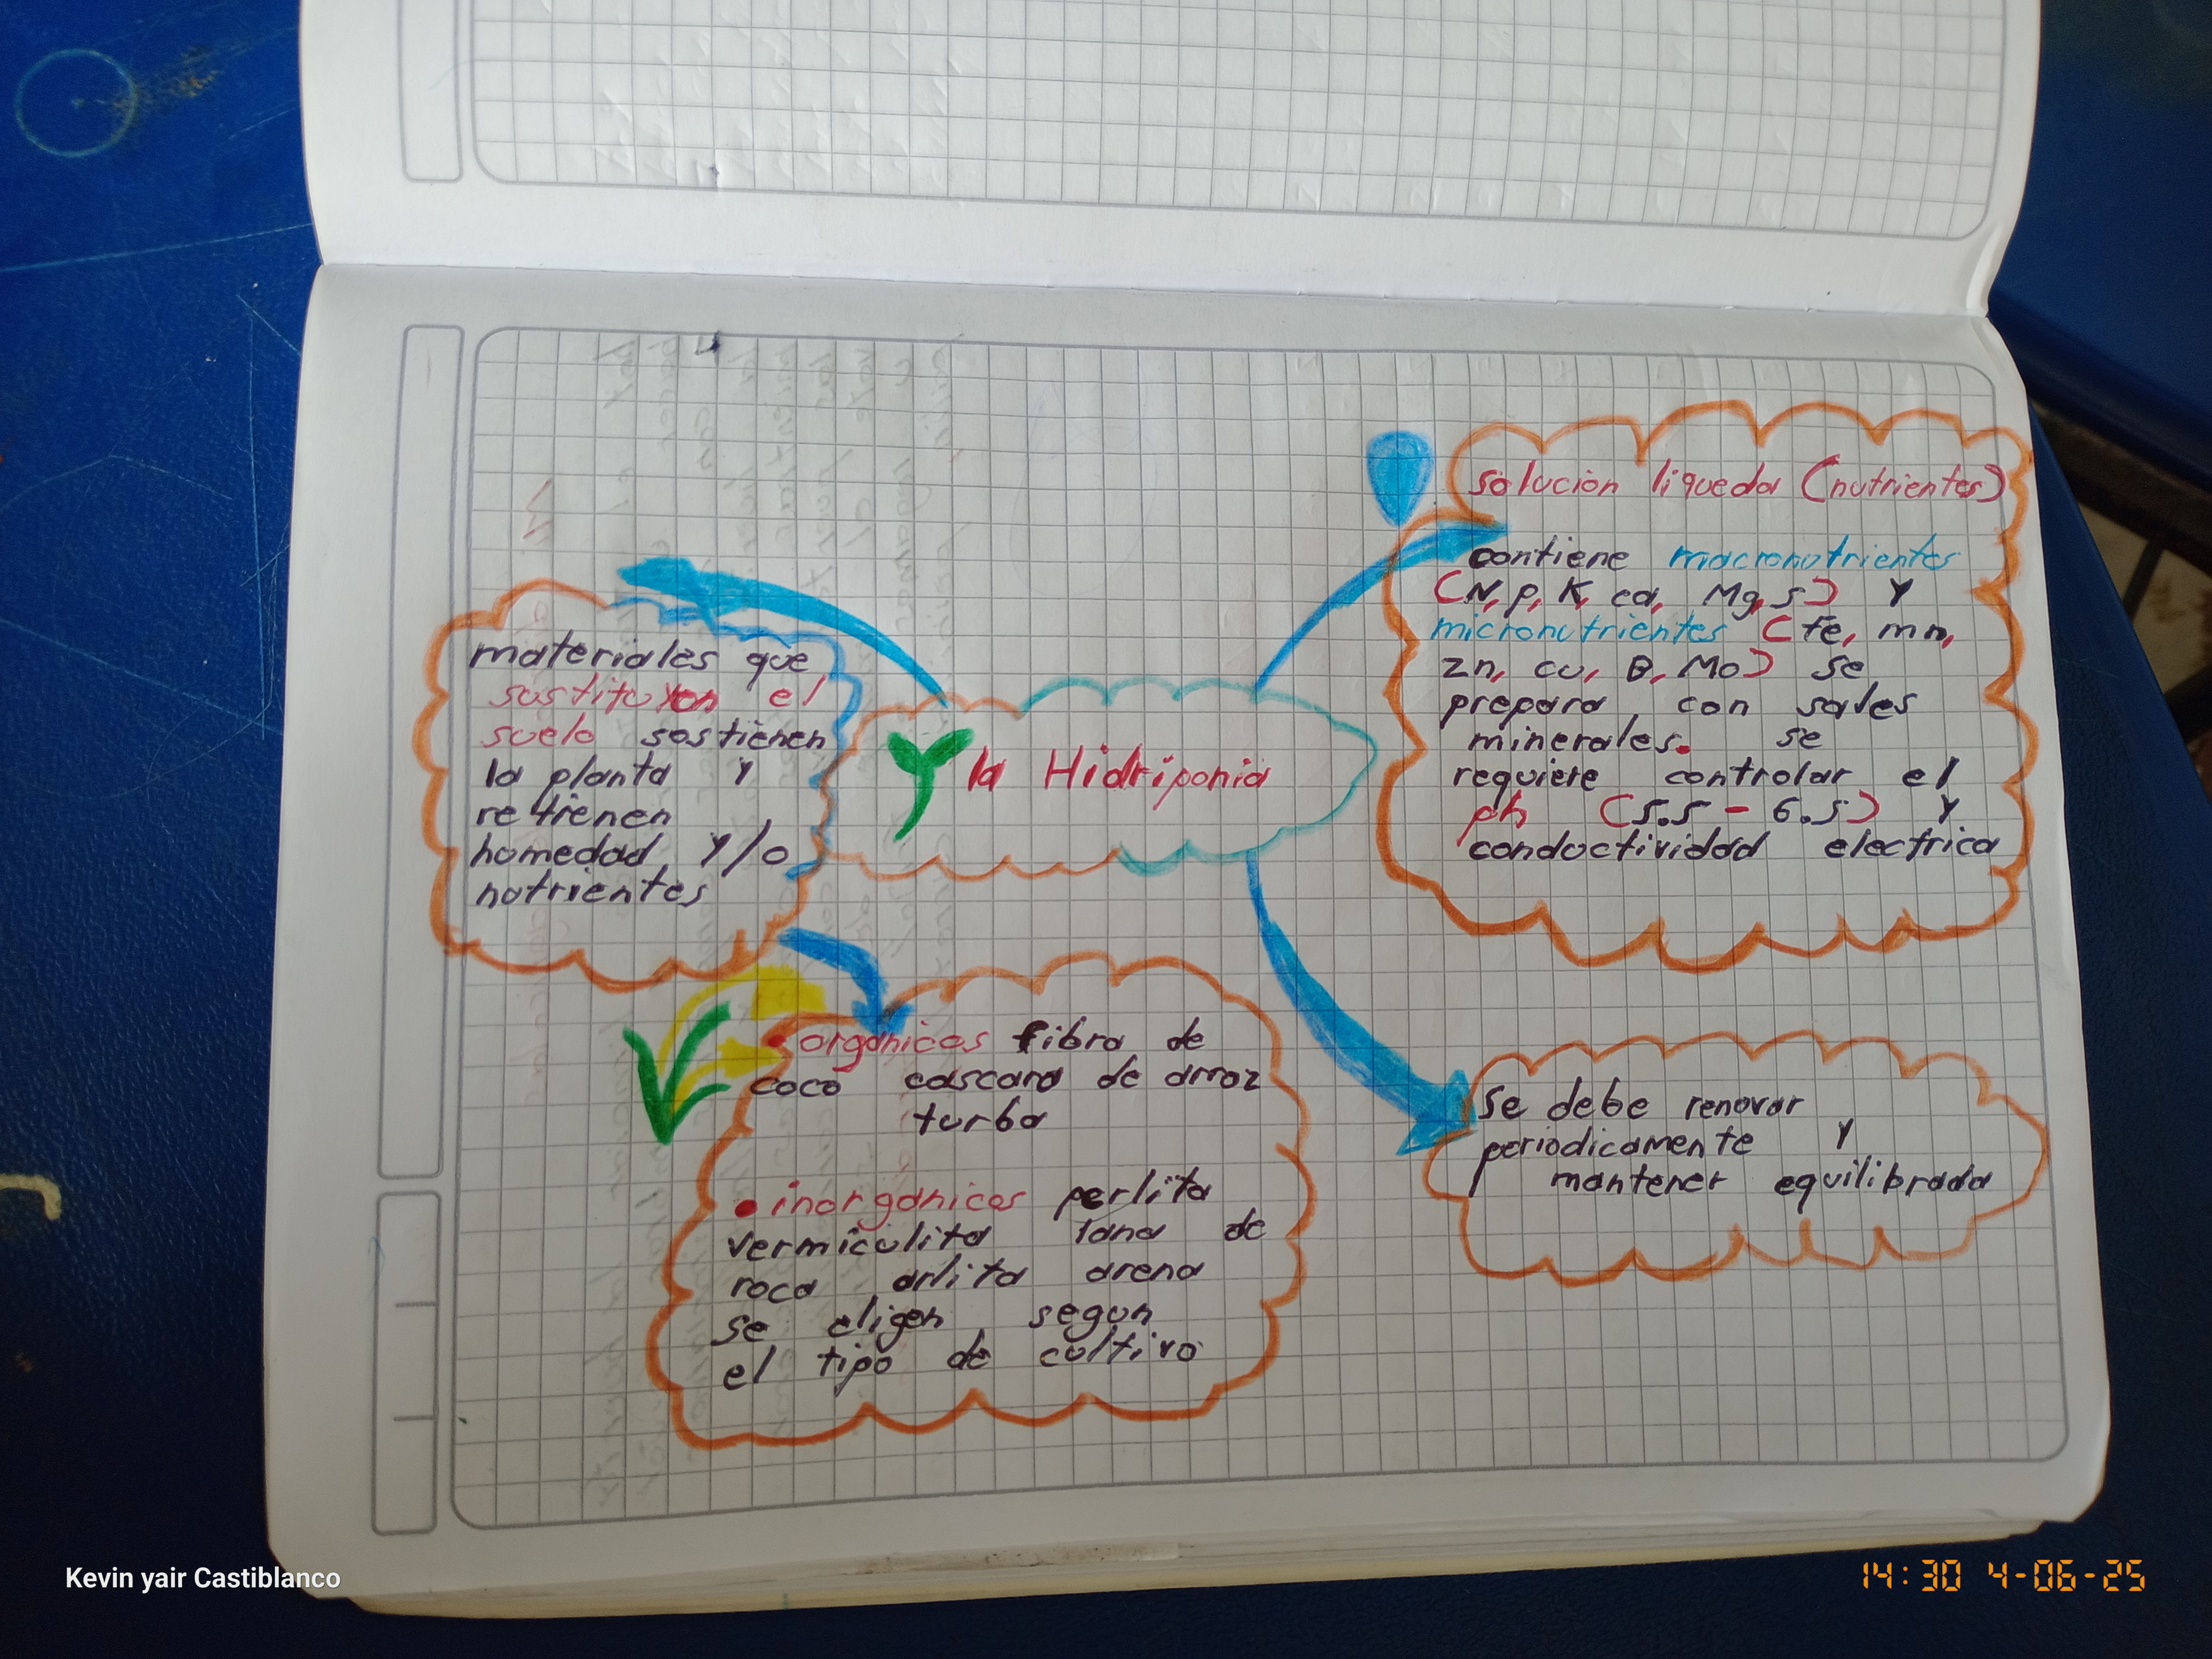 la Hidriponia
materiales que
sustituyen el
suelo sostienen
la planta y
retienen
homedad y/o
nutrientes
• organicos fibra de
coco cascara de arroz
turba
• inorganicos perlita
vermiculita lana de
roca arlita arena
se eligen segun
el tipo de cultivo
solucion liqueda (nutrientes)
contiene macronutrientes
(N, p, K, ca, Mg, s) y
micronutrientes (Fe, mn,
zn, cu, B, Mo) se
prepara con sales
minerales. se
requiere controlar el
ph (5.5 - 6.5) y
conductividad electrica
se debe renovar
periodicamente y
mantener equilibrada
Kevin yair Castiblanco
14:30 4-06-25